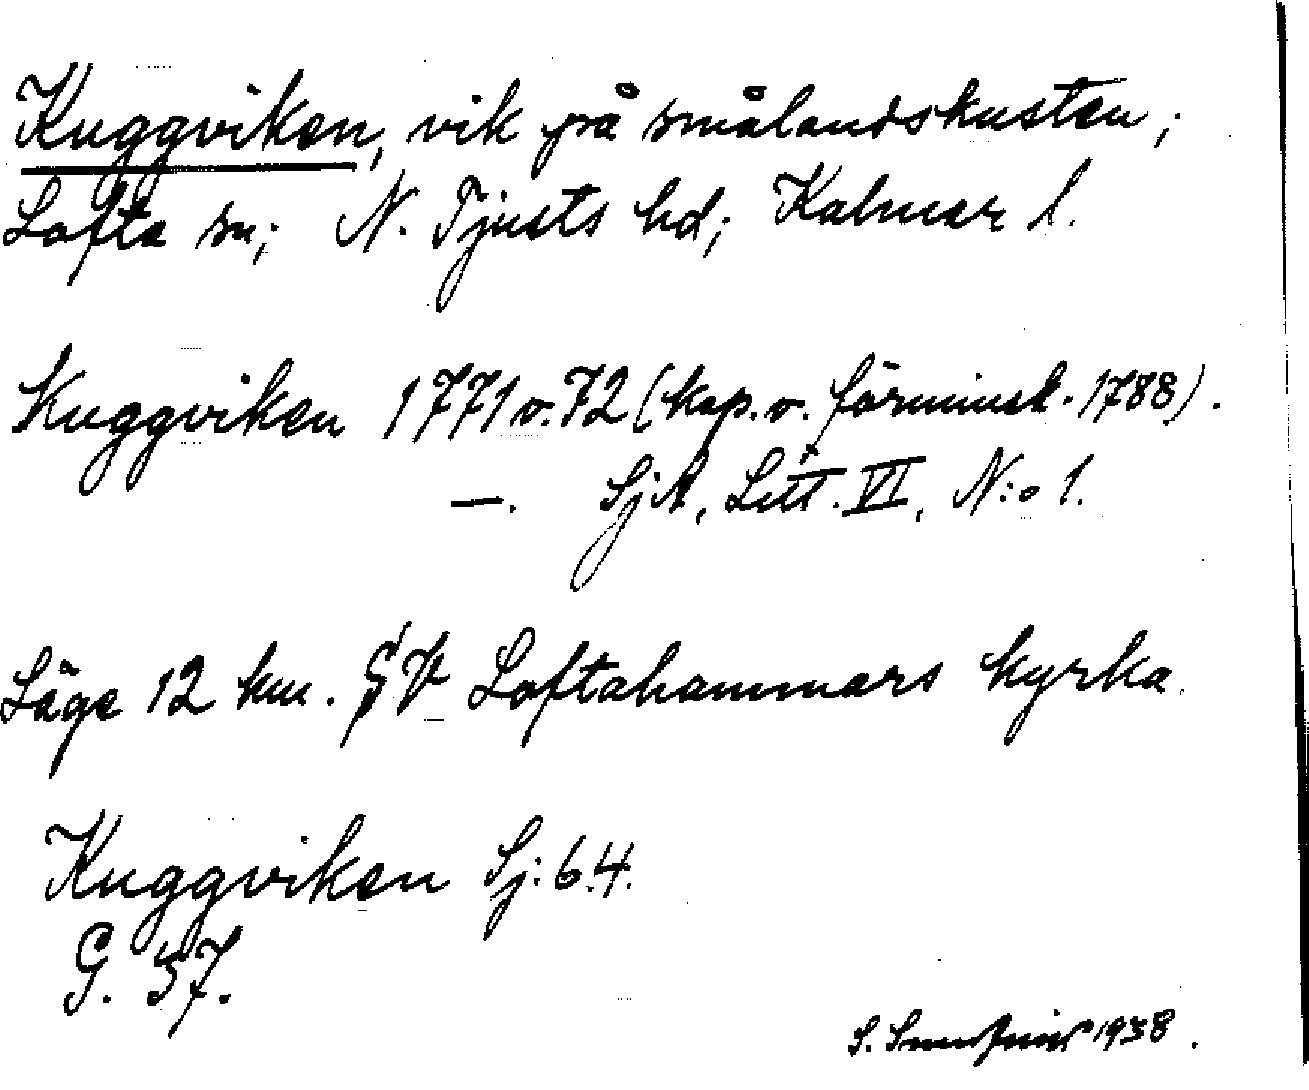 Kuggviken, vik på smålandskusten;
Lofta sn; N. Tjusts hd; Kalmar l.
Kuggviken 1771 o. 72 (kop. o. förminsk. 1788).
—. SjA, Litt. VI, N:o 1.
Läge 12 km. SV Loftahammars kyrka.
Kuggviken Sj: 64.
G. 37.
S. 1938.